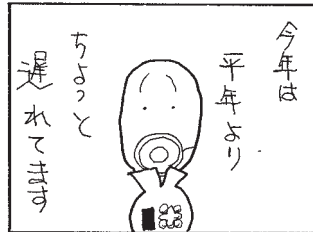 今年は
平年より
ちょっと
遅れてます